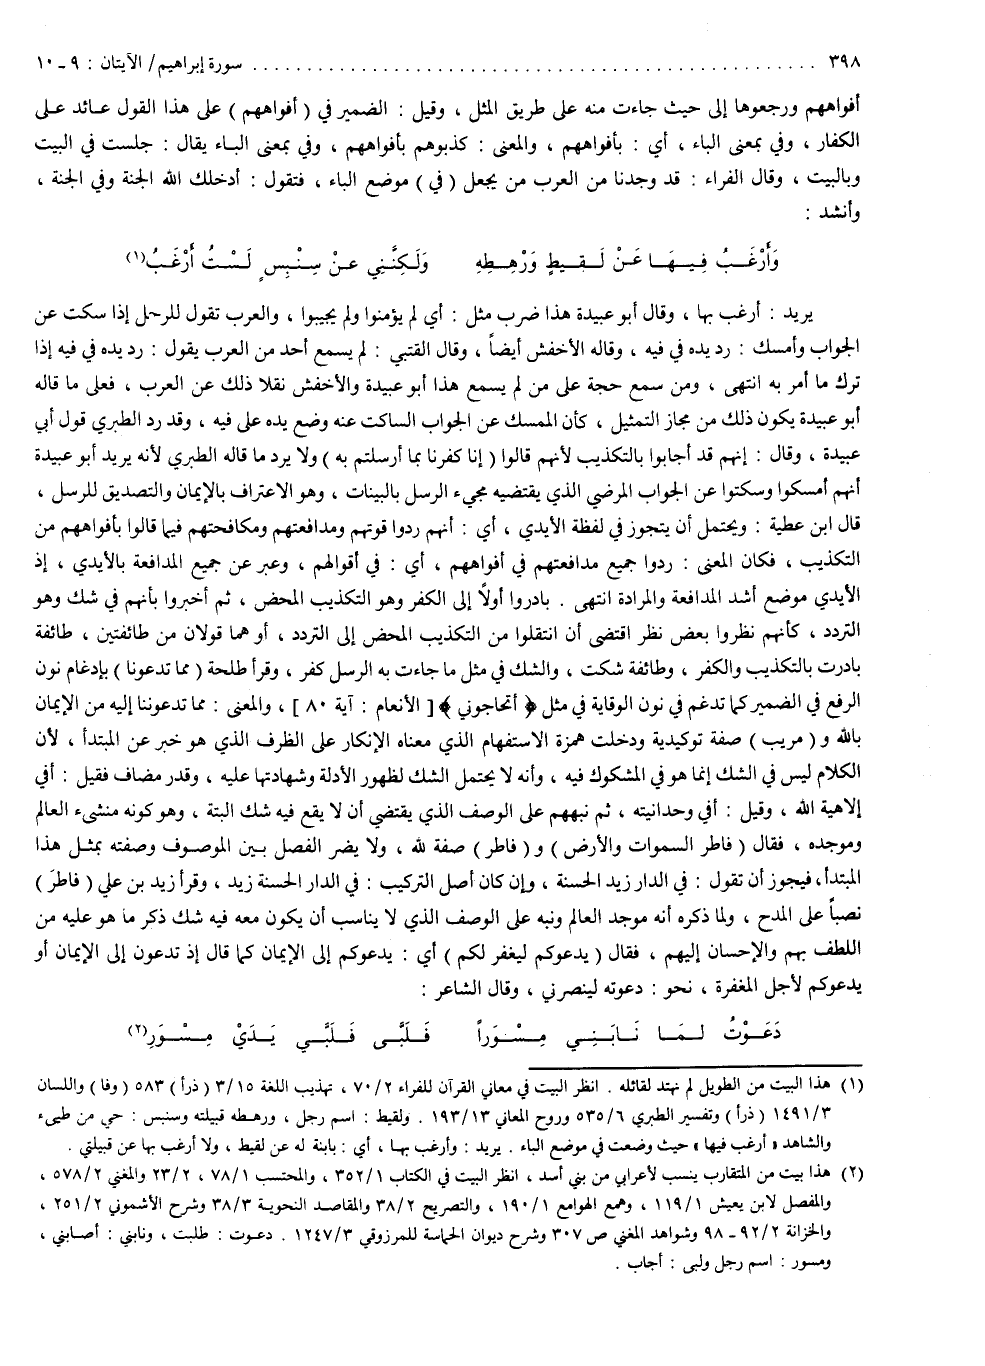 ٣٩٨ .................................................... سورة إبراهيم/ الآيتان : ٩ ـ ١٠
أفواههم ورجعوها إلى حيث جاءت منه على طريق المثل ، وقيل : الضمير في ( أفواههم ) على هذا القول عائد على
الكفار ، وفي بمعنى الباء ، أي : بأفواههم ، والمعنى : كذبوهم بأفواههم ، وفي بمعنى الباء يقال : جلست في البيت
وبالبيت ، وقال الفراء : قد وجدنا من العرب من يجعل ( في ) موضع الباء ، فتقول : أدخلك الله الجنة وفي الجنة ،
وأنشد :
وَأَرْغَبُ فِيهَا عَنْ لَقِيطٍ وَرْهطِهِ وَلَكِنَّنِي عنْ سِنْبِسٍ لَسْتُ أَرْغَبُ(١)
يريد : أرغب بها ، وقال أبو عبيدة هذا ضرب مثل : أي لم يؤمنوا ولم يجيبوا ، والعرب تقول للرجل إذا سكت عن
الجواب وأمسك : رد يده في فيه ، وقاله الأخفش أيضاً ، وقال القتبي : لم يسمع أحد من العرب يقول : رد يده في فيه إذا
ترك ما أمر به انتهى ، ومن سمع حجة على من لم يسمع هذا أبو عبيدة والأخفش نقلا ذلك عن العرب ، فعلى ما قاله
أبو عبيدة يكون ذلك من مجاز التمثيل ، كأن الممسك عن الجواب الساكت عنه وضع يده على فيه ، وقد رد الطبري قول أبي
عبيدة ، وقال : إنهم قد أجابوا بالتكذيب لأنهم قالوا ( إنا كفرنا بما أرسلتم به ) ولا يرد ما قاله الطبري لأنه يريد أبو عبيدة
أنهم أمسكوا وسكتوا عن الجواب المرضي الذي يقتضيه مجيء الرسل بالبينات ، وهو الاعتراف بالإيمان والتصديق للرسل ،
قال ابن عطية : ويحتمل أن يتجوز في لفظة الأيدي ، أي : أنهم ردوا قوتهم ومدافعتهم ومكافحتهم فيما قالوا بأفواههم من
التكذيب ، فكان المعنى : ردوا جميع مدافعتهم في أفواههم ، أي : في أقوالهم ، وعبر عن جميع المدافعة بالأيدي ، إذ
الأيدي موضع أشد المدافعة والمرادة انتهى . بادروا أولاً إلى الكفر وهو التكذيب المحض ، ثم أخبروا بأنهم في شك وهو
التردد ، كأنهم نظروا بعض نظر اقتضى أن انتقلوا من التكذيب المحض إلى التردد ، أو هما قولان من طائفتين ، طائفة
بادرت بالتكذيب والكفر ، وطائفة شكت ، والشك في مثل ما جاءت به الرسل كفر ، وقرأ طلحة ( مما تدعونا ) بإدغام نون
الرفع في الضمير كما تدغم في نون الوقاية في مثل ﴿ أتحاجوني ﴾ [ الأنعام : آية ٨٠ ] ، والمعنى : مما تدعوننا إليه من الإيمان
بالله و ( مريب ) صفة توكيدية ودخلت همزة الاستفهام الذي معناه الإنكار على الظرف الذي هو خبر عن المبتدأ ، لأن
الكلام ليس في الشك إنما هو في المشكوك فيه ، وأنه لا يحتمل الشك لظهور الأدلة وشهادتها عليه ، وقدر مضاف فقيل : أفي
إلاهية الله ، وقيل : أفي وحدانيته ، ثم نبههم على الوصف الذي يقتضي أن لا يقع فيه شك البتة ، وهو كونه منشىء العالم
وموجده ، فقال ( فاطر السموات والأرض ) و ( فاطر ) صفة لله ، ولا يضر الفصل بين الموصوف وصفته بمثل هذا
المبتدأ، فيجوز أن تقول : في الدار زيد الحسنة ، وإن كان أصل التركيب : في الدار الحسنة زيد ، وقرأ زيد بن علي ( فاطرَ )
نصباً على المدح ، ولما ذكره أنه موجد العالم ونبه على الوصف الذي لا يناسب أن يكون معه فيه شك ذكر ما هو عليه من
اللطف بهم والإحسان إليهم ، فقال ( يدعوكم ليغفر لكم ) أي : يدعوكم إلى الإيمان كما قال إذ تدعون إلى الإيمان أو
يدعوكم لأجل المغفرة ، نحو : دعوته لينصرني ، وقال الشاعر :
دَعَوْتُ لِمَا نَابَنِي مِسْوَراً فَلَبَّى فَلَبَّي يَدَيْ مِسْوَرِ(٢)
(١) هذا البيت من الطويل لم نهتد لقائله . انظر البيت في معاني القرآن للفراء ٧٠/٢ ، تهذيب اللغة ٣/١٥ ( ذرأ ) ٥٨٣ ( وفا ) واللسان
١٤٩١/٣ ( ذرأ ) وتفسير الطبري ٥٣٥/٦ وروح المعاني ١٩٣/١٣ . ولقيط : اسم رجل ، ورهطه قبيلته وسنبس : حي من طيىء
والشاهد « أرغب فيها » حيث وضعت في موضع الباء . يريد : وأرغب بها ، أي : بابنة له عن لقيط ، ولا أرغب بها عن قبيلتي .
(٢) هذا بيت من المتقارب ينسب لأعرابي من بني أسد ، انظر البيت في الكتاب ٣٥٢/١ ، والمحتسب ٧٨/١ ، ٢٣/٢ والمغني ٥٧٨/٢ ،
والمفصل لابن يعيش ١١٩/١ ، وهمع الهوامع ١٩٠/١ ، والتصريح ٣٨/٢ والمقاصد النحوية ٣٨/٣ وشرح الأشموني ٢٥١/٢ ،
والخزانة ٩٢/٢ ـ ٩٨ وشواهد المغني ص ٣٠٧ وشرح ديوان الحماسة للمرزوقي ١٢٤٧/٣ . دعوت : طلبت ، ونابني : أصابني ،
ومسور : اسم رجل ولبى : أجاب .